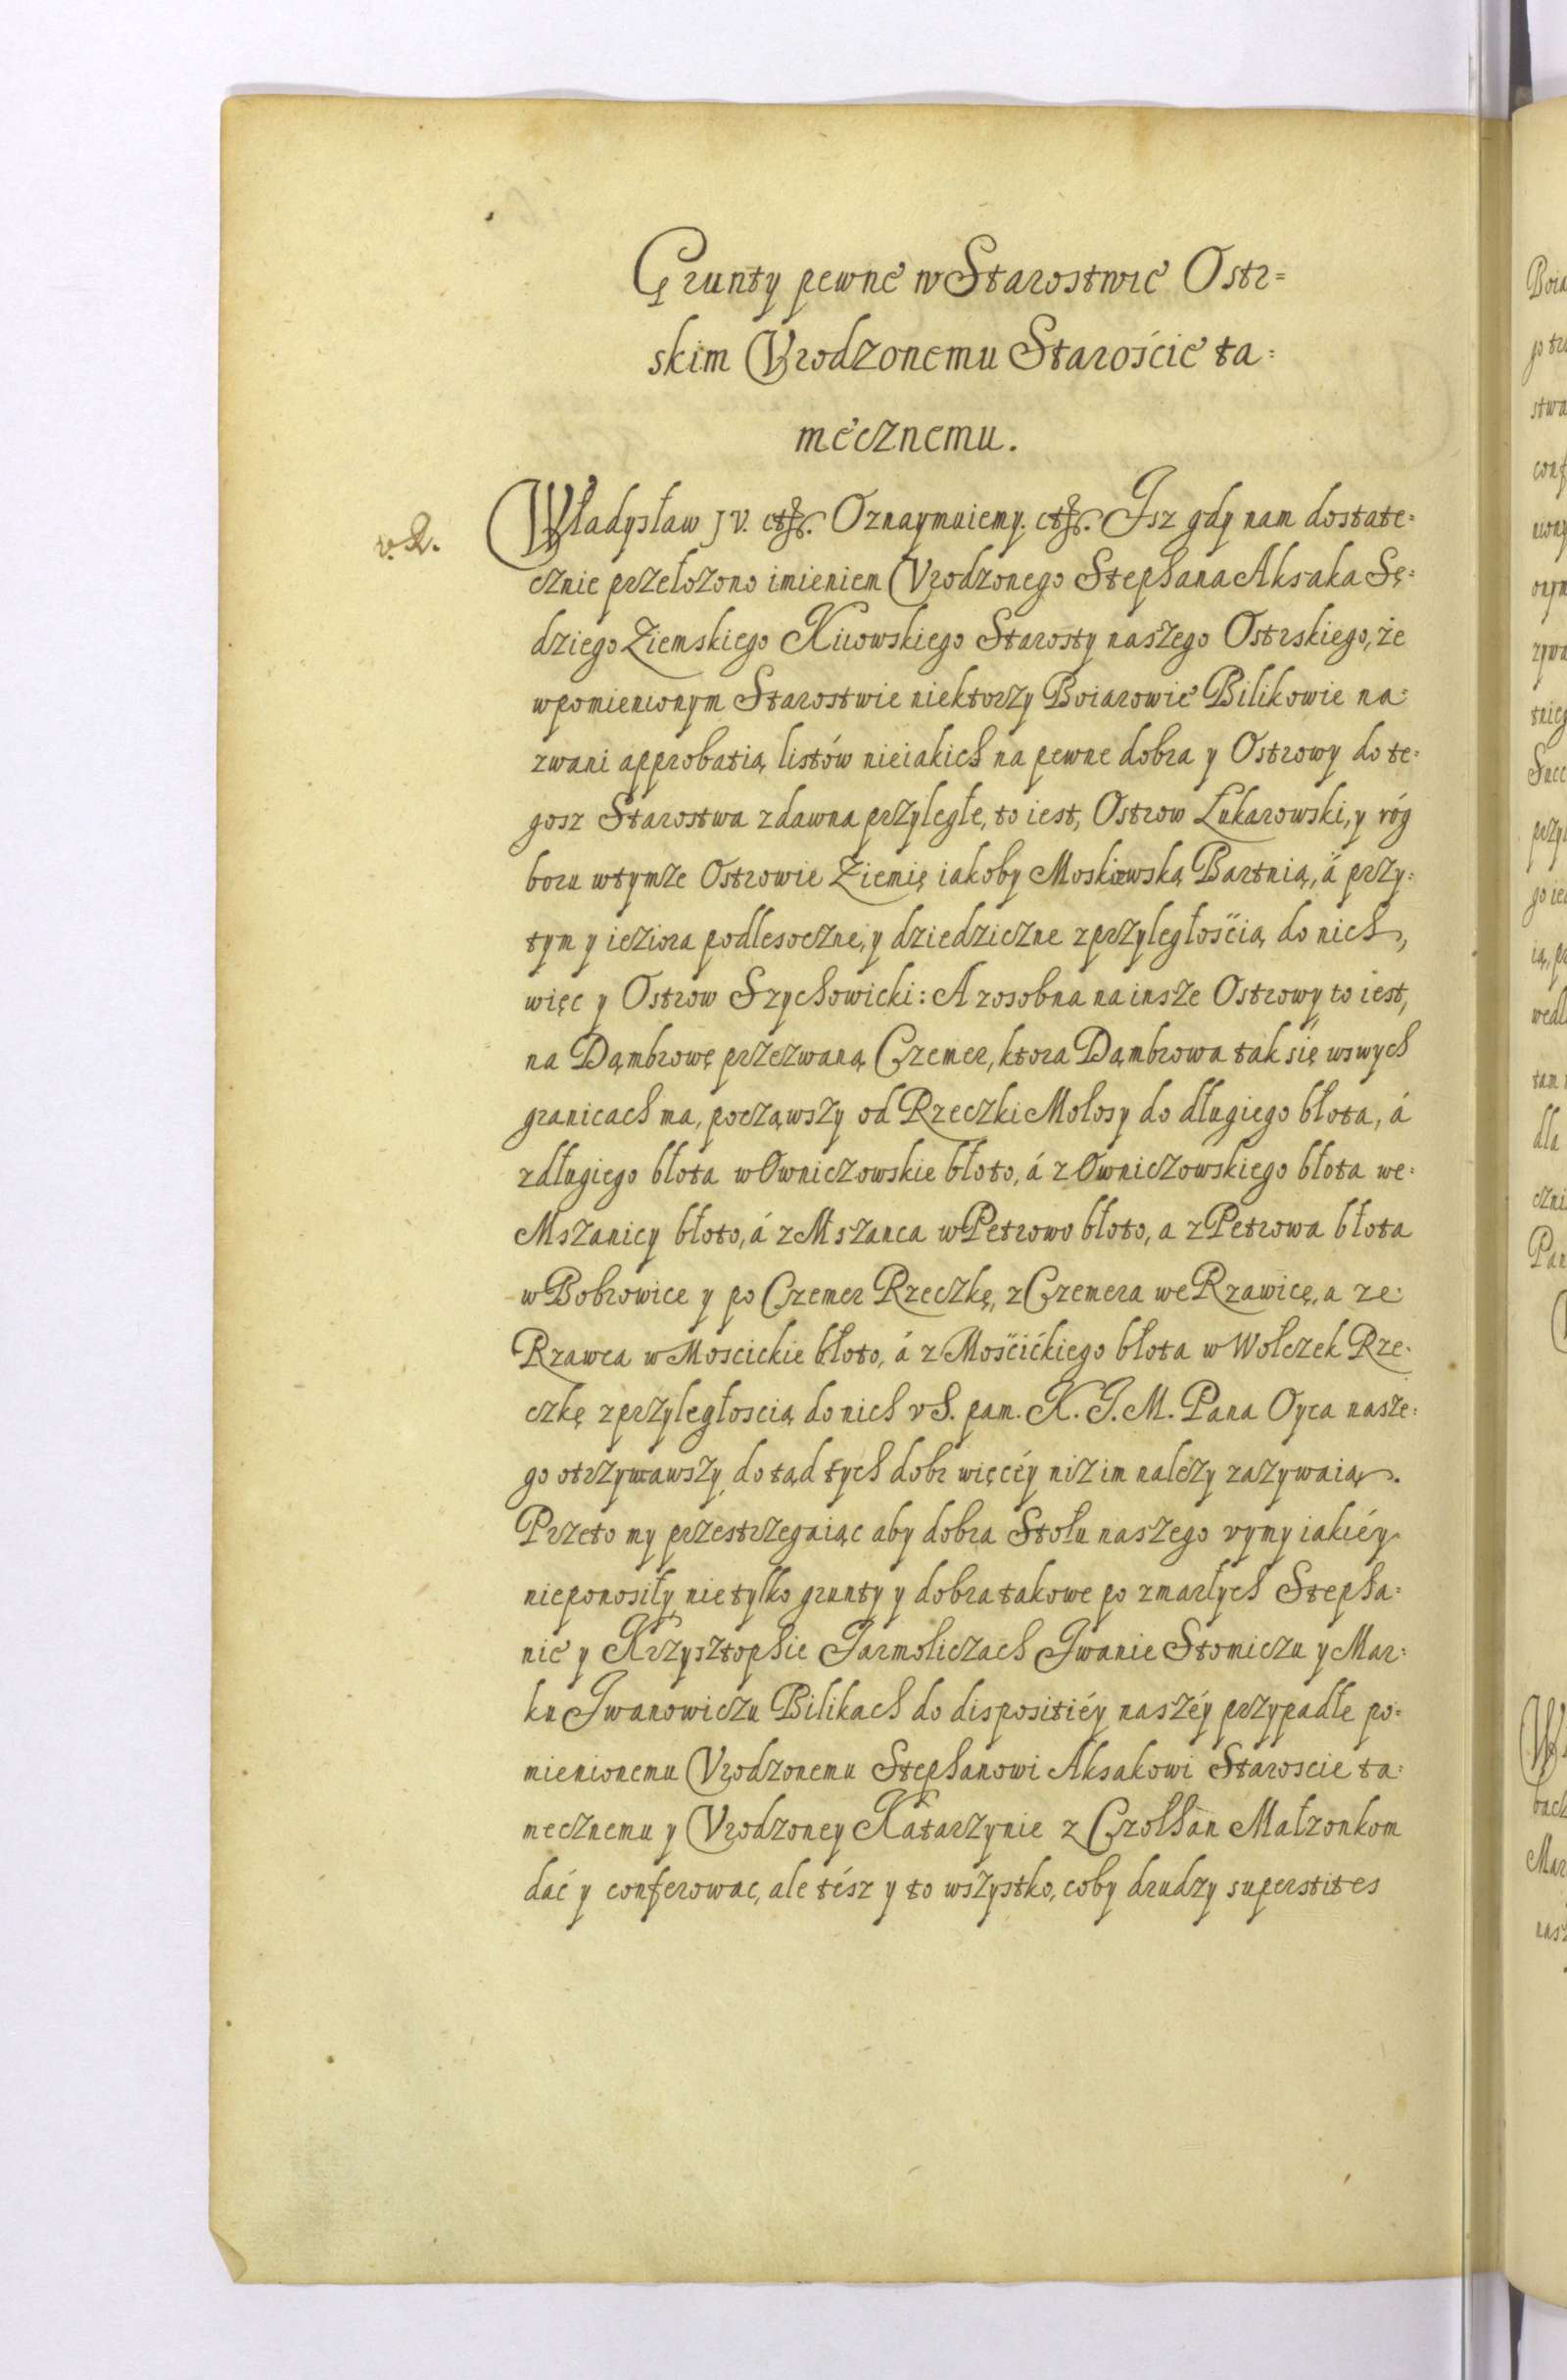 Grunty pewne w Starostwie Ostr=
skim Vrodzonemu Starościé ta=
mécznemu.
v. R.
Władysław JV. etc. Oznaymuiemy. etc. Jsz gdy nam dostate=
cznie przełozono imieniem Vrodzonego Stephana Aksaka Sę=
dziego Ziemskiego Kiiowskiego Starosty naszego Ostrskiego, że
wpomienionym Starostwie niektorzy Boiarowie Bilikowie na=
zwani approbatią listów nieiakich na pewne dobra y Ostrowy do te=
gosz Starostwa zdawna przyległe, to iest, Ostrow Łukarowski, y róg
boru wtymże Ostrowie Ziemię iakoby Moskiewską Bartnią, á przy=
tym y ieziora podlesoczne, y dziedziczne zprzyległością do nich,
więc y Ostrow Szychowicki: A zosobna na insze Ostrowy to iest,
na Dąmbrowę przezwaną Czemer, ktora Dąmbrowa tak się wswych
granicach ma, począwszy od Rzeczki Mołosy do długiego błota, á
zdługiego błota w Owniczowskie błoto, á z Owniczowskiego błota we=
Mszanicy błoto, á z Mszanca w Petrowo błoto, a z Petrowa błota
w Bobrowice y po Czemer Rzeczkę, z Czemera we Rzawicę, a ze=
Rzawca w Moscickie błoto, á z Mośćićkiego błota w Wołczek Rze=
czkę zprzyległoscią do nich v S. pam. K. J. M. Pana Oyca nasze=
go otrzymawszy, dotąd tych dobr więcéy niz im należy zazywaią.
Przeto my przestrzegaiąc aby dobra Stołu naszego vymy iakiéy
nieponosiły nietylko grunty y dobra takowe po zmarłych Stepha=
nie y Krzysztophie Jarmoliczach Jwanie Stomiczu y Mar=
ku Jwanowiczu Bilikach do dispositiéy naszéy przypadłe po=
mienionemu Vrodzonemu Stephanowi Aksakowi Staroscie ta=
mecznemu y Vrodzoney Katarzynie z Czołhan Małzonkom
dać y conferowac, ale tész y to wszystko, coby drudzy superstites